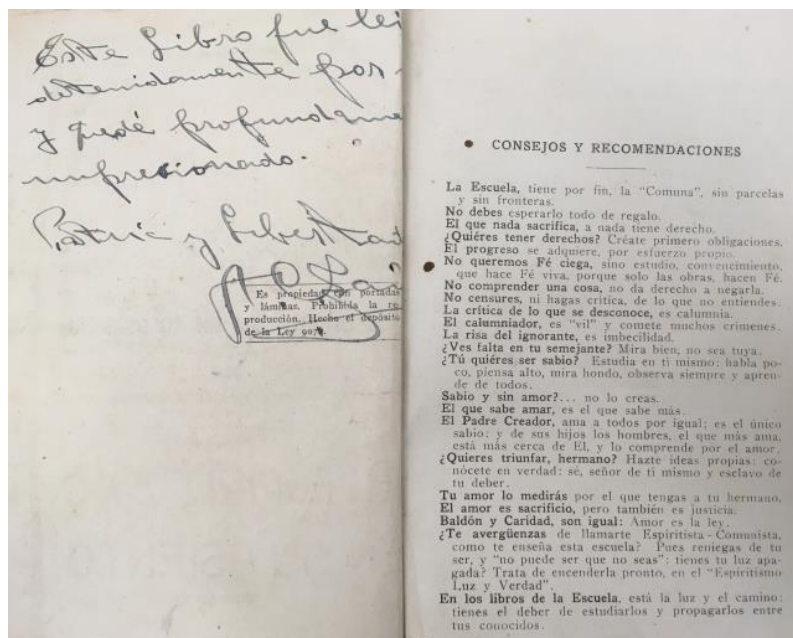 Este Libro fue lei
detenidamente por
y quedé profundame
impresionado.
Patria y Libertad
Es propiedad con portadas
y láminas. Prohibida la re
producción. Hecho el depósito
de la Ley 9078.
CONSEJOS Y RECOMENDACIONES
La Escuela, tiene por fin, la "Comuna", sin parcelas
y sin fronteras.
No debes esperarlo todo de regalo.
El que nada sacrifica, a nada tiene derecho.
¿Quiéres tener derechos? Créate primero obligaciones.
El progreso se adquiere, por esfuerzo propio.
No queremos Fé ciega, sino estudio, convencimiento,
que hace Fé viva, porque solo las obras, hacen Fé.
No comprender una cosa, no da derecho a negarla.
No censures, ni hagas crítica, de lo que no entiendes.
La crítica de lo que se desconoce, es calumnia.
El calumniador, es "vil" y comete muchos crímenes.
La risa del ignorante, es imbecilidad.
¿Ves falta en tu semejante? Mira bien, no sea tuya.
¿Tú quiéres ser sabio? Estudia en ti mismo; habla po-
co, piensa alto, mira hondo, observa siempre y apren-
de de todos.
Sabio y sin amor?... no lo creas.
El que sabe amar, es el que sabe más.
El Padre Creador, ama a todos por igual; es el único
sabio; y de sus hijos los hombres, el que más ama,
está más cerca de El, y lo comprende por el amor.
¿Quieres triunfar, hermano? Hazte ideas propias; co-
nócete en verdad: sé, señor de ti mismo y esclavo de
tu deber.
Tu amor lo medirás por el que tengas a tu hermano.
El amor es sacrificio, pero también es justicia.
Baldón y Caridad, son igual: Amor es la ley.
¿Te avergüenzas de llamarte Espiritista-Comunista,
como te enseña esta escuela? Pues reniegas de tu
ser, y "no puede ser que no seas"; tienes tu luz apa-
gada? Trata de encenderla pronto, en el "Espiritismo
Luz y Verdad".
En los libros de la Escuela, está la luz y el camino:
tienes el deber de estudiarlos y propagarlos entre
tus conocidos.